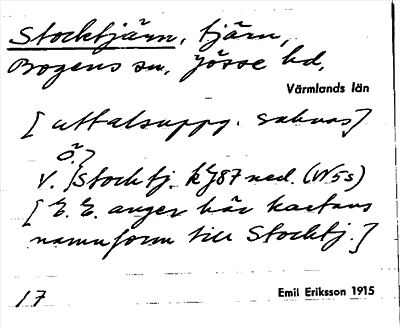 Stocktjärn, tjärn,
Bogens sn, Jösse hd,
Värmlands län
[uttalsuppg. saknas]
Ö.
V. } Stocktj. kj 87 ned. (W5s)
[E. E. anger här kartans
namnform till Stocktj.]
17
Emil Eriksson 1915